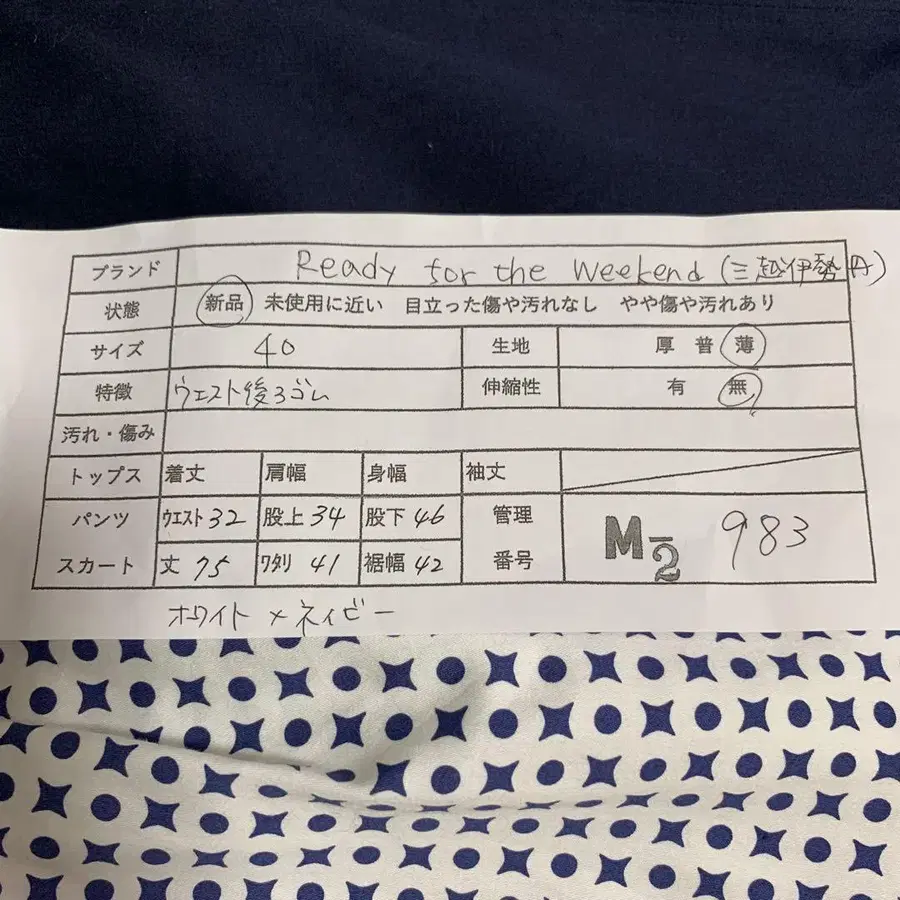 ブランド Ready for the Weekend (三越伊勢丹)
状態 新品 未使用に近い 目立った傷や汚れなし やや傷や汚れあり
サイズ 40 生地 厚 普 薄
特徴 ウエスト後ろゴム 伸縮性 有 無
汚れ・傷み
トップス 着丈 肩幅 身幅 袖丈
パンツ ウエスト 32 股上 34 股下 46 管理
スカート 丈 75 ワタリ 41 裾幅 42 番号
M-2 983
ホワイト×ネイビー